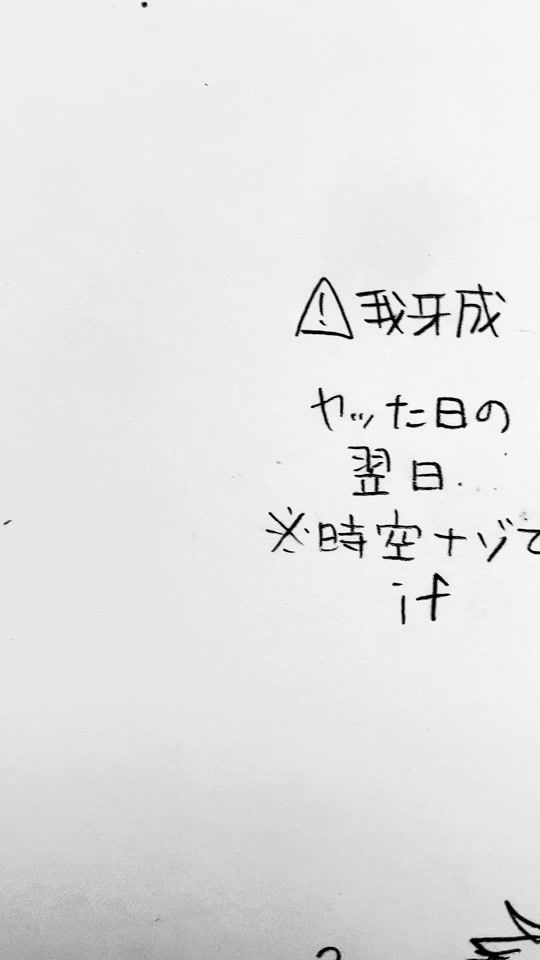 ⚠我牙成
ヤッた日の
翌日.
※時空ナゾで
if